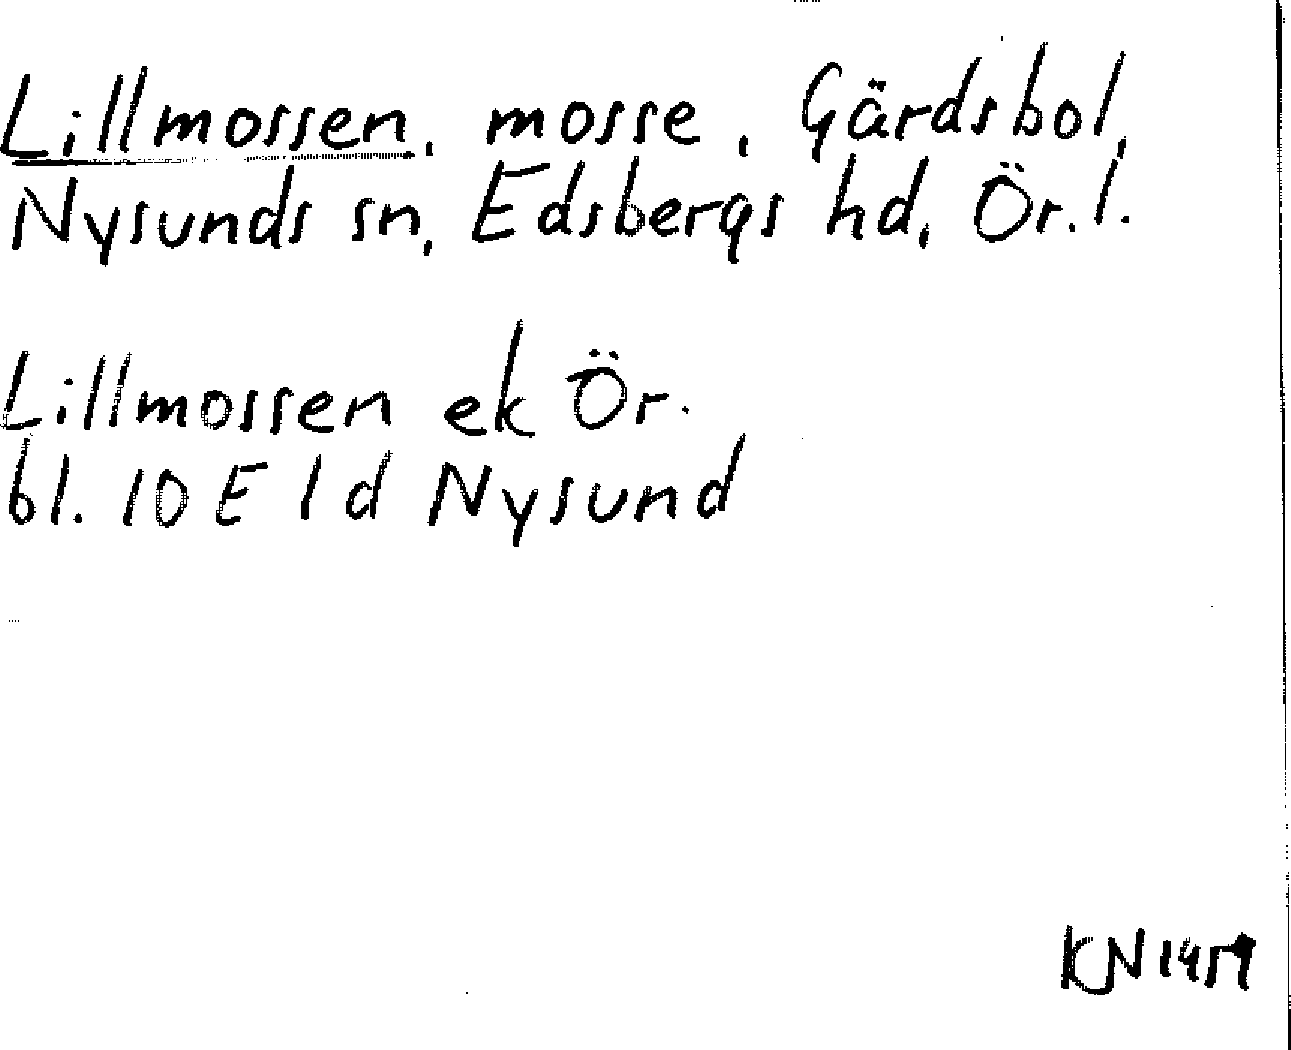 Lillmossen, mosse, Gärdsbol,
Nysunds sn, Edsbergs hd, Ör. l.
Lillmossen ek Ör.
bl. 10 E 1 d Nysund